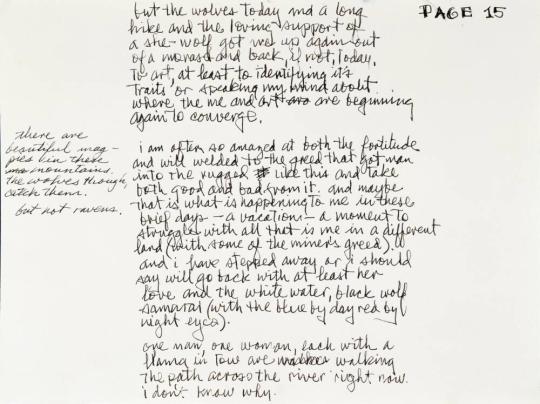 PAGE 15
but the wolves today and a long
hike and the loving support of
a she-wolf got me up again out
of a morass and back, if not, today,
to art, at least to identifying its
traits or speaking my mind about
where the me and art are beginning
again to converge.
i am often so amazed at both the fortitude
and will welded to the greed that got man
into the rugged like this and take
both good and bad from it. and maybe
that is what is happening to me in these
brief days - a vacation - a moment to
struggle with all that is me in a different
land (with some of the miners greed).
and i have stepped away or i should
say will go back with at least her
love and the white water, black wolf
samurai (with the blue by day red by
night eyes).
one man, one woman, each with a
llama in tow are walking
the path across the river right now.
i don't know why.
there are
beautiful mag-
pies in these
mountains.
the wolves though,
catch them.
but not ravens.